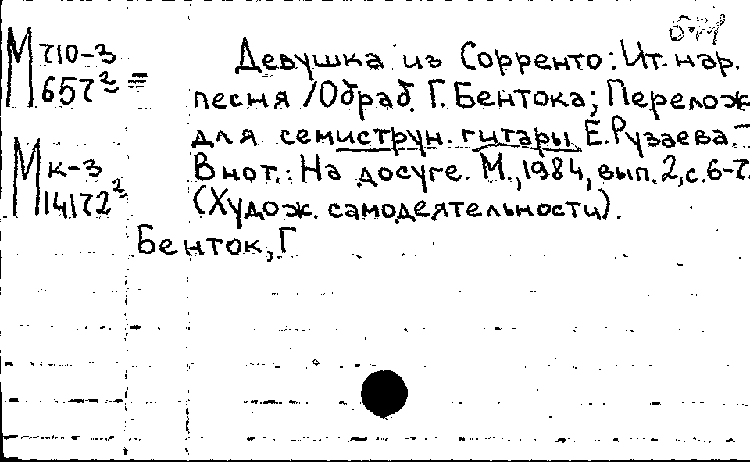 Девушка из Сорренто: Ит. нар.
М 710-3
657² =
песня / Обраб. Г. Бентока; Перелож.
для семиструн. гитары Е. Рузаева. –
М к-3
14172²
В нот.: На досуге. М., 1984, вып. 2, с. 6-7.
(Худож. самодеятельности).
Бенток, Г